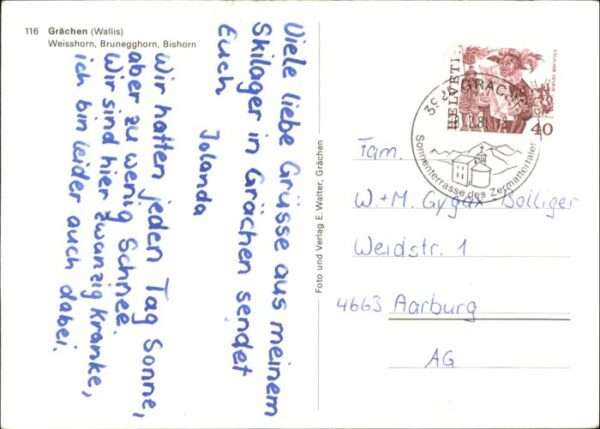 116 Grächen (Wallis)
Weisshorn, Brunegghorn, Bishorn
Viele liebe Grüsse aus meinem
Skilager in Grächen sendet
Euch
Jolanda
Wir hatten jeden Tag Sonne,
aber zu wenig Schnee.
Wir sind hier zwanzig Kranke,
ich bin leider auch dabei.
Foto und Verlag E. Walter, Grächen
HELVETIA
40
GRÄCHEN
Sonnenterrasse des Zermattertales
Fam.
W.+M. Gygax-Bolliger
Weidstr. 1
4663 Aarburg
AG